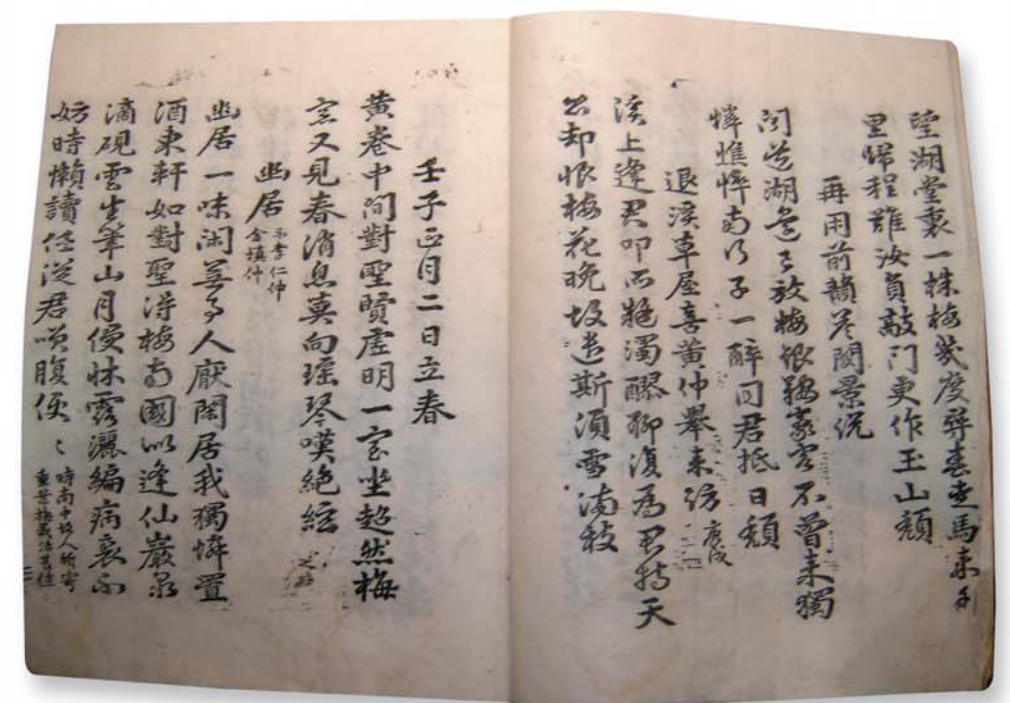 望湖堂裏一株梅幾度尋春走馬來千
里歸程難汝負敲門更作玉山頹
再用前韻答閔景說
聞說湖邊已放梅銀鞍豪客不曾來獨
憐憔悴南行子一醉同君抵日頹
退溪草屋喜黃仲舉來訪 庚戌
溪上逢君叩所疑濁醪聊復爲君持天
公却恨梅花晚故遣斯須雪滿枝
壬子正月二日立春
黃卷中間對聖賢虛明一室坐超然梅
窓又見春消息莫向瑤琴嘆絶絃
幽居 示李仁仲
金愼仲
幽居一味閑無事人厭閑居我獨憐置
酒東軒如對聖得梅南國似逢仙巖泉
滴硯雲生筆山月侵牀露灑編病裏不
妨時懶讀任從君笑腹便〻 時南中故人所寄
重葉梅栽活甚佳